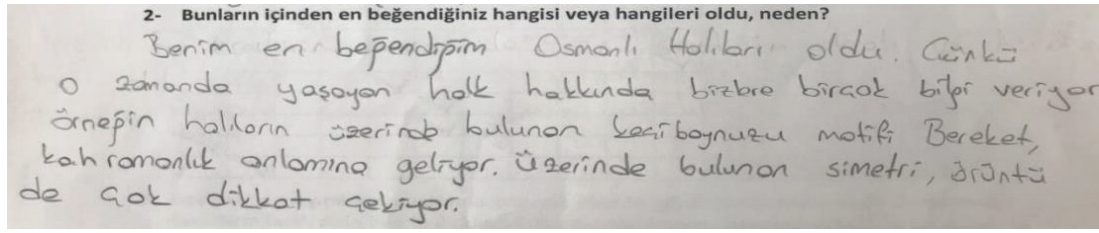 2- Bunların içinden en beğendiğiniz hangisi veya hangileri oldu, neden?
Benim en beğendiğim Osmanlı Halıları oldu. Çünkü
o zamanda yaşayan halk hakkında bizlere birçok bilgi veriyor
örneğin halıların üzerinde bulunan keçiboynuzu motifi Bereket,
kahramanlık anlamına geliyor. Üzerinde bulunan simetri, örüntü
de çok dikkat çekiyor.